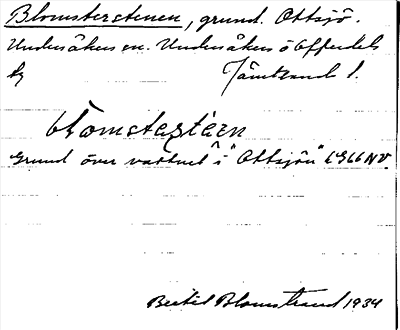 Blomsterstenen, grund. Ottsjö.
Undersåkers sn. Undersåkers o Offerdals
tg Jämtland l.
blomsterstèen
Grund över vattnet i "Ottsjön" 696 6 NV.
Bertil Blomstrand 1934